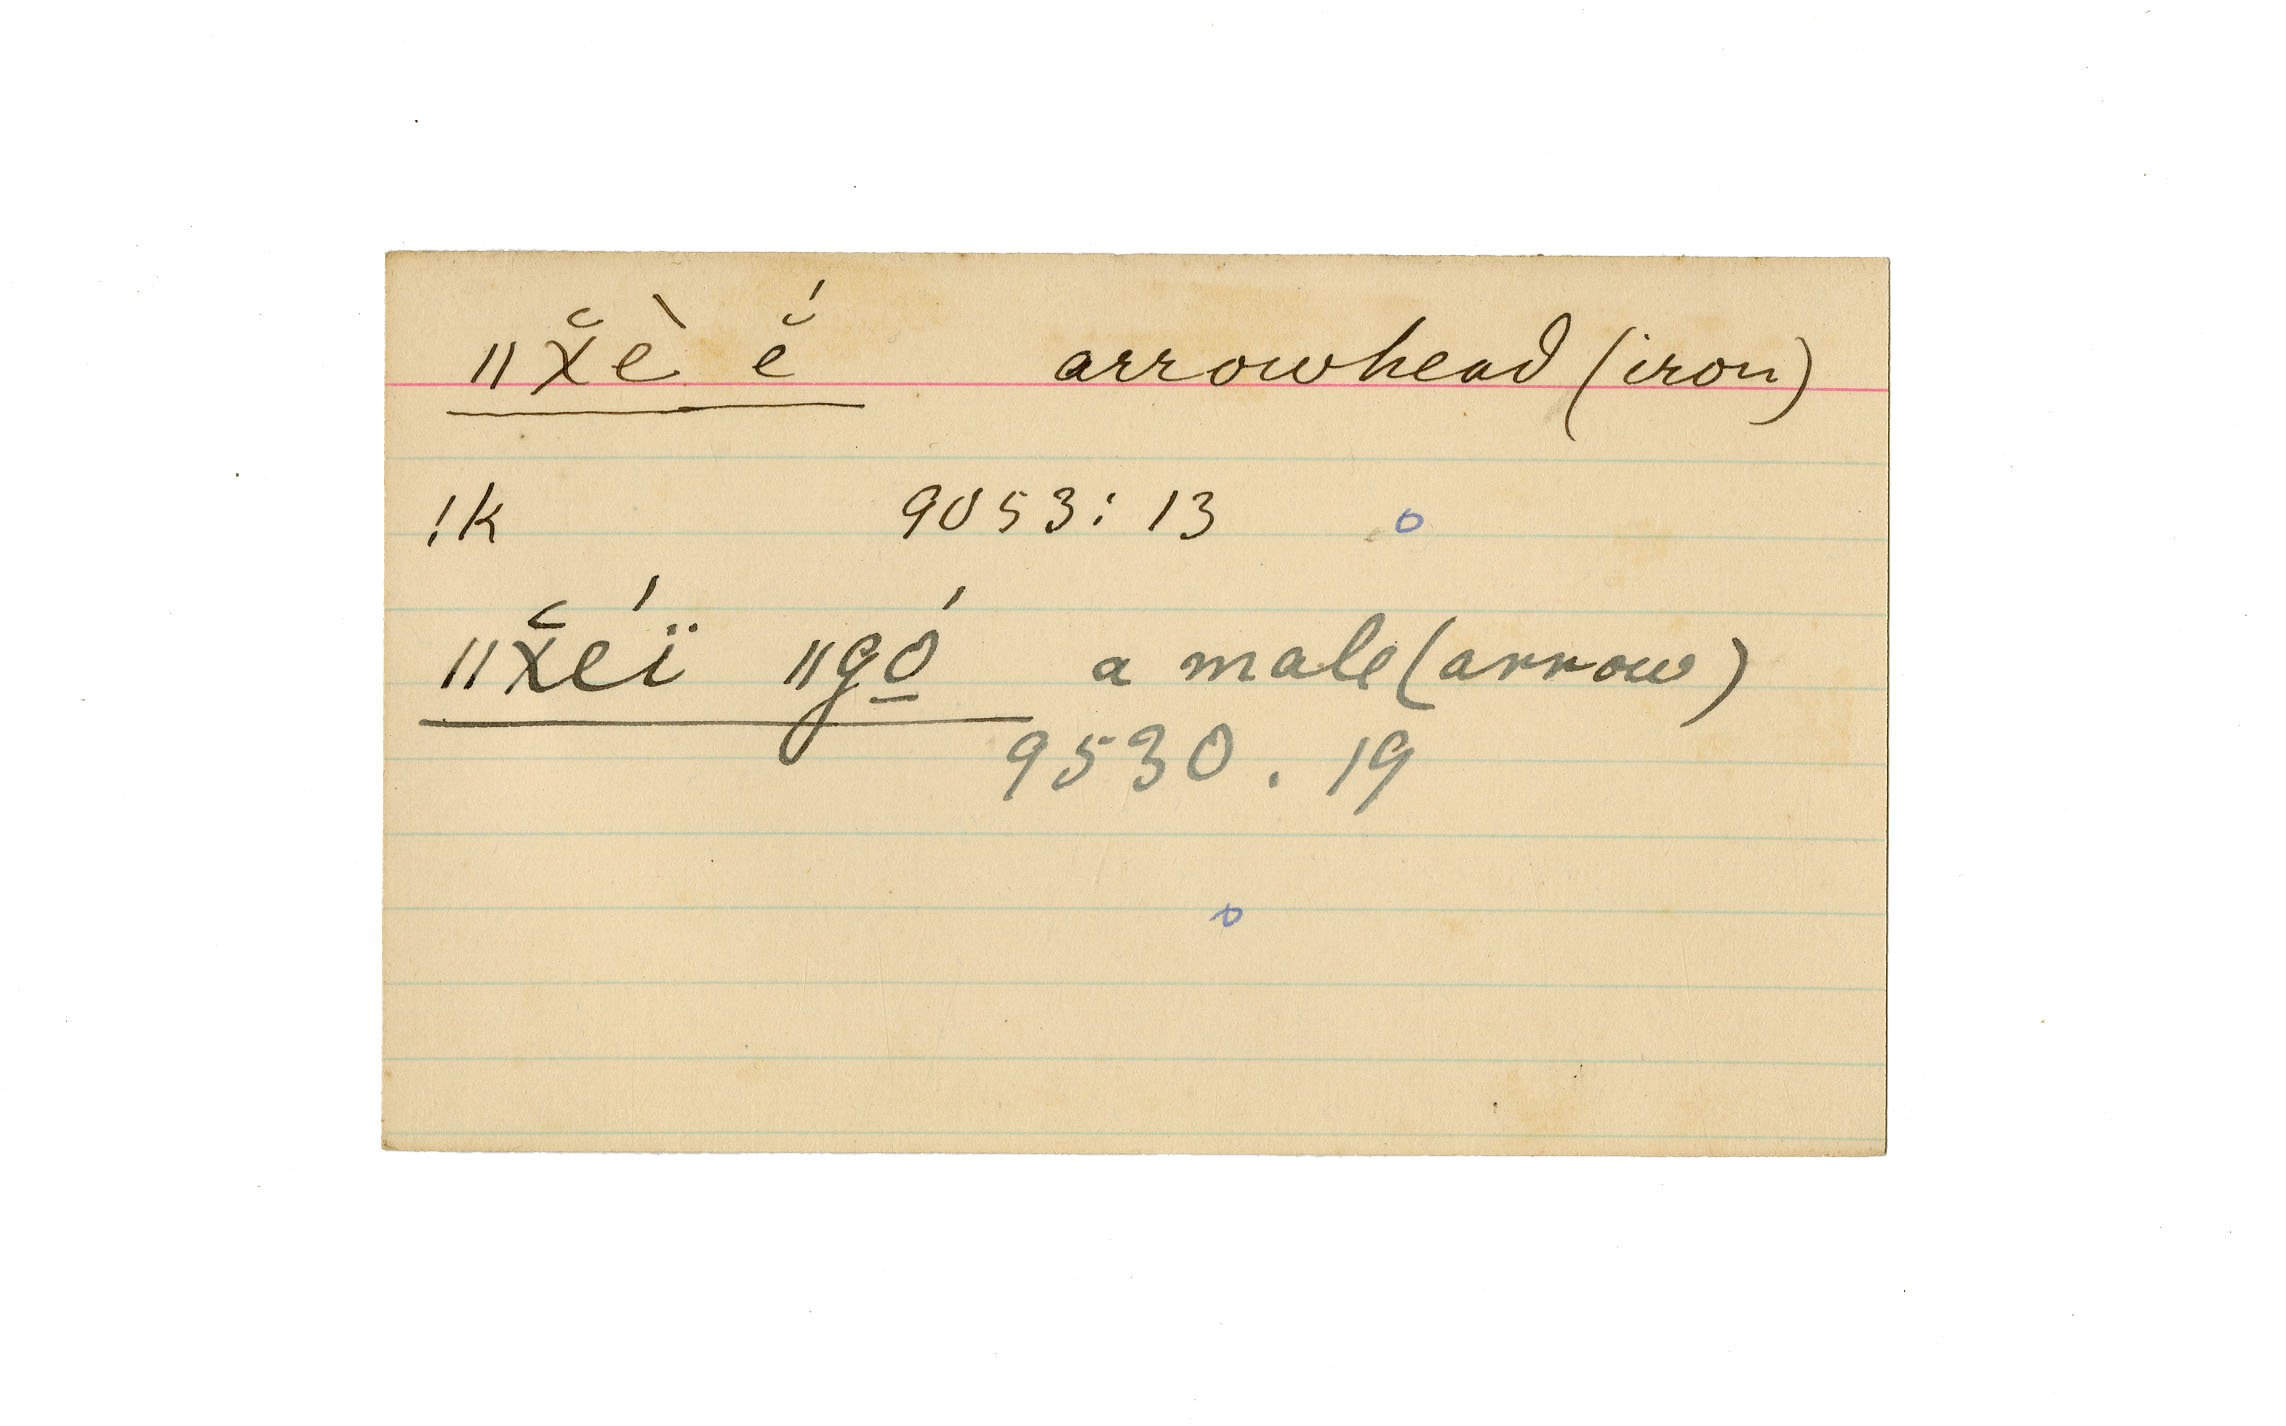 ǁχ̆è ĕ́ arrowhead (iron)
!k 9053: 13 o
ǁχ̆éï ǁgó̱ a male (arrow)
9530. 19
o